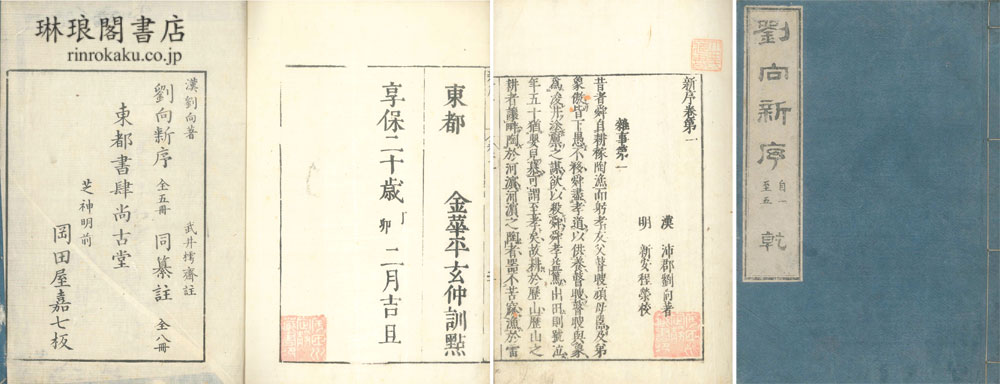 琳琅閣書店
rinrokaku.co.jp
漢劉向著
武井樗齋註
劉向新序 全五冊 同纂註 全八冊
東都書肆尚古堂
芝神明前
岡田屋嘉七板
東都 金華平玄仲訓點
享保二十歳丁卯二月吉旦
新序卷第一
漢 沛郡劉向著
明 新安程榮校
雜事第一
昔者舜自耕稼陶漁而躬孝友父瞽瞍頑母嚚及弟
象傲皆下愚不移舜盡孝道以供養瞽瞍瞽瞍與象
為浚井塗廩之謀欲以殺舜舜孝益篤出田則號泣
年五十猶嬰兒慕可謂至孝矣故耕於歷山歷山之
耕者讓畔陶於河濱河濱之陶者器不苦窳漁於雷
劉向新序 自一至五 乾